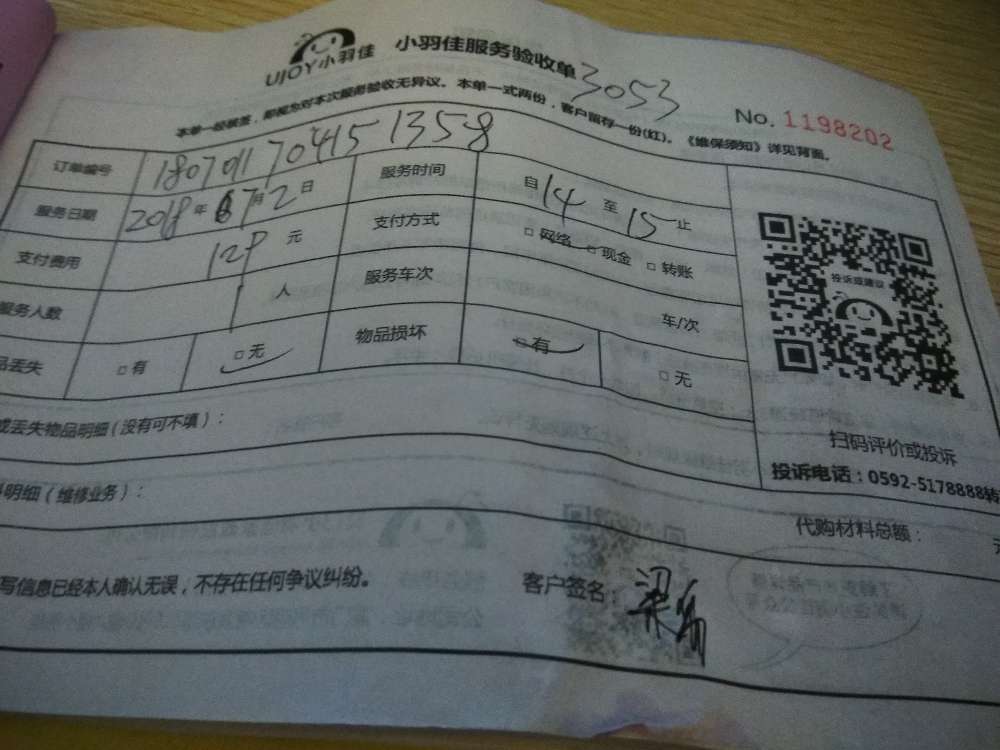 UJOY小羽佳 小羽佳服务验收单 3053
No. 1198202
本单一经核签，即视为对本次服务验收无异议。本单一式两份，客户留存一份(红)。《维保须知》详见背面。
订单编号 18070170415 1358
服务日期 2018年07月2日 服务时间 自14至15止
支付费用 129元 支付方式 □网络 □现金 □转账
服务人数 1人 服务车次 车/次
品丢失 □有 □无 物品损坏 □有 □无
投诉或建议
或丢失物品明细（没有可不填）：
扫码评价或投诉
投诉电话：0592-5178888转
明细（维修业务）：
代购材料总额：
写信息已经本人确认无误，不存在任何争议纠纷。
客户签名：梁